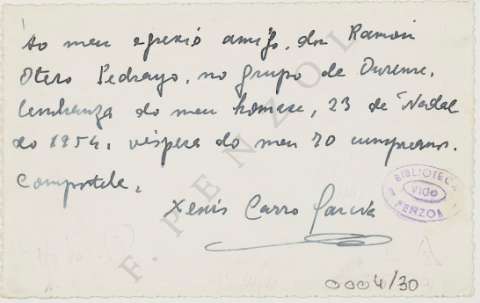 Ao meu egrexio amigo, don Ramón
Otero Pedrayo, no grupo de Ourense.
Lembranza do meu homaxe, 23 de Nadal
do 1954, véspera do meu 70 cumpreanos.
Compostela,
Xenis Carro García
BIBLIOTECA
Vigo
PENZOL
F. PENZOL
0004/30